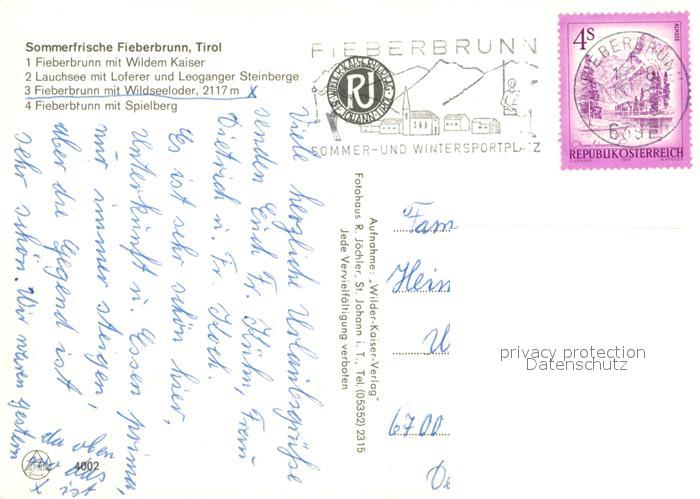 Sommerfrische Fieberbrunn, Tirol
1 Fieberbrunn mit Wildem Kaiser
2 Lauchsee mit Loferer und Leoganger Steinberge
3 Fieberbrunn mit Wildseeloder, 2117 m x
4 Fieberbrunn mit Spielberg
FIEBERBRUNN
SOMMER-UND WINTERSPORTPLATZ
4S
ALMSEE
REPUBLIK ÖSTERREICH
FIEBERBRUNN
Viele herzliche Urlaubsgrüße
senden Euch Fr. Kühn, Frau
Dietrich u. Fr. Koch.
Es ist sehr schön hier,
Unterkunft u. Essen prima,
nur immer steigen,
aber die Gegend ist
sehr schön. Wir waren gestern
da oben
wo das
x ist
Aufnahme: „Wilder-Kaiser-Verlag"
Fotohaus R. Jöchler, St. Johann i. T., Tel. (05352) 2315
Jede Vervielfältigung verboten
Fam
Hein
U
6700
4002
privacy protection
Datenschutz